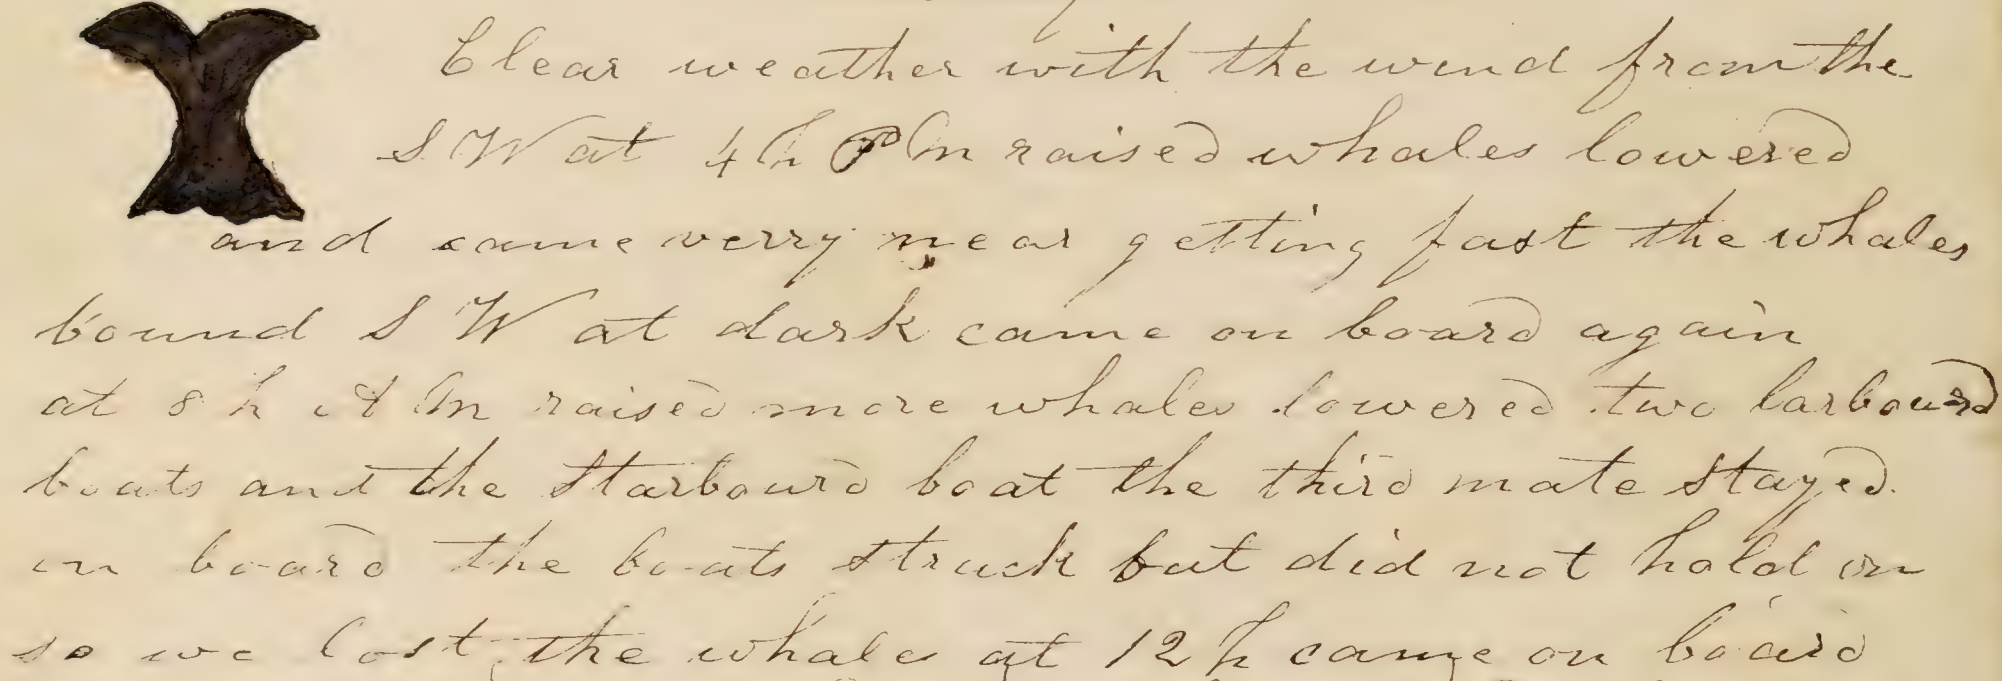 Clear weather with the wind from the
S W at 4 h P M raised whales lowered
and came verry near getting fast the whales
bound S W at dark came on board again
at 8 h A M raised more whales lowered two larbourd
boats and the Starbourd boat the third mate stayed
on board the boats struck but did not hold on
so we lost the whale at 12 h came on board